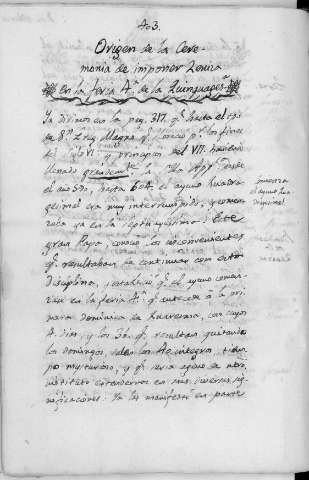 403.
Origen de la Cere-
monia de imponer Ceniza
en la feria 4ª de la Quinquagesª
Ya dixinos en la pag. 317. qᵉ hasta el tpo
de Sⁿ Greg. Magno qᵉ ocupó pʳ los fines
del siglo VI. y principios del VII. haviendo
llenado la Silla Apᶜᵃ desde
el año 590, hasta 604. el ayuno quadra-
gesimal era muy interrumpido, y comen-
zaba ya en la septuagesima. Este
gran Papa, conoció los inconvenientes
qᵉ resultaban de continuar con esta
disciplina, y estableció qᵉ el ayuno comen-
zara en la feria 4ª qᵉ antecede á la pri-
mera dominica de Quaresma, con cuyos
4. dias, y los 36. qᵉ resultan quitando
los domingos, salen los 40 integros, tiem-
po mysterioso, y qᵉ seria ageno de nrō
instituto extendernos en sus diversas sig-
nificaciones. Ya las manifesté en parte
el ayuno qua
dragesimal